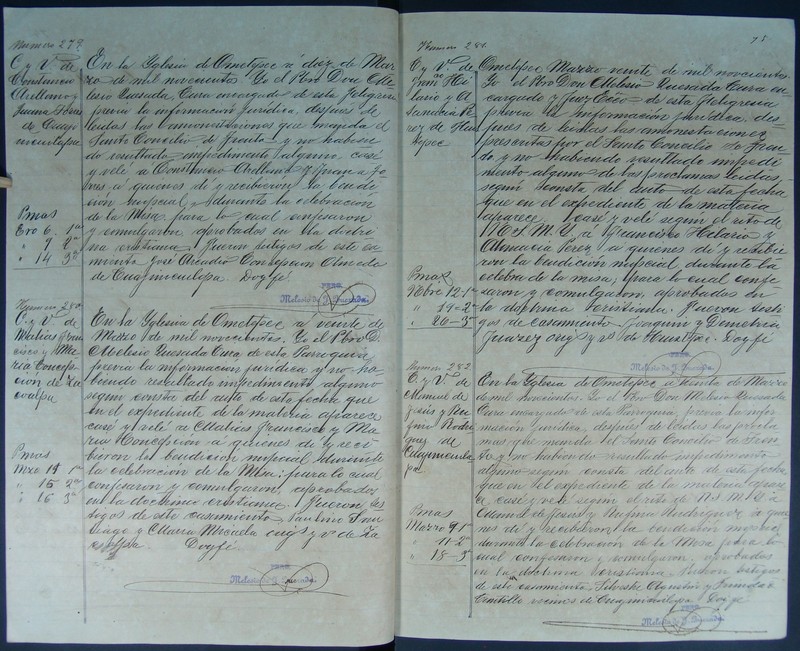 Numero 279
C y V. de
Constancio
Arellano y
Juana
de Cuaji
nicuilapa
En la Yglesia de Ometepec á diez de Mar
zo de mil novecientos Yo el Pbro Don Me
lesio Quesada, Cura encargado de esta Feligresia
previa la informacion juridica, despues de
leidas las amonestaciones que manda el
Santo Concilio de Trento y no habien
do resultado impedimento alguno, casé
y velé á Constancio Arellano y Juana
á quienes dí y recibieron la bendi
cion nupcial, durante la celebracion
de la Misa, para lo cual confesaron
y comulgaron aprobados en la doctri
na cristiana. Fueron testigos de este ca
samiento José Arcadio Concepcion
de Cuajinicuilapa Doy fé
Pmas
Ero 6. 1a
" 7 2a
" 14 3a
PBRO.
Melesio de J. Quesada.
Numero 280
C y V. de
Matias Fran
cisco y Ma
ria Concep
cion de Za
cualpa
En la Yglesia de Ometepec á veinte de
de mil novecientos. Yo el Pbro D.
Melesio Quesada Cura de esta Parroquia
previa la informacion juridica y no ha
biendo resultado impedimento alguno
segun consta del auto de esta fecha que
en el expediente de la materia aparece
casé y velé á Matias Francisco y Ma
ria Concepcion á quienes dí y reci
bieron la bendicion nupcial durante
la celebracion de la Misa; para lo cual
confesaron y comulgaron, aprobados
en la doctrina cristiana. Fueron tes
tigos de este casamiento Paulino San
tiago y Maria Micaela y vs de Za
cualpa Doy fé
Pmas
Mzo 11 1a
" 15 2a
" 16 3a
PBRO.
Melesio de J. Quesada.
75.
Numero 281
C y V. de
Franco Hi
lario y A
tanacia Pe
rez de Hues
tepec
Ometepec Marzo veinte de mil novecientos
Yo el Pbro Don Melesio Quesada Cura en
cargado y Juez Ecco de esta Feligresia
previa la informacion juridica, des
pues de leidas las amonestaciones
prescritas por el Santo Concilio de Tren
to y no habiendo resultado impedi
mento alguno de las proclamas leidas,
segun consta del auto de esta fecha
que en el expediente de la materia
aparece, casé y velé segun el rito de
N S. M. Y. á Francisco Hilario y
Atanacia Perez á quienes dí y recibie
ron la bendicion nupcial durante la
celebra de la misa; para lo cual confe
saron y comulgaron, aprobados en
la doctrina Cristiana. Fueron testi
gos de casamiento Joaquin y Demetria
Juarez y vs de Huestepec. Doy fé
Pmas
Nbre 12-1a
" 19=2a
" 26-3a
PBRO.
Melesio de J. Quesada.
Numero 282
C y V. de
Manuel de
Jesus y Ru
fina Rodri
guez de
Cuajinicuila
pa
En la Yglesia de Ometepec á treinta de Marzo
de mil novecientos. Yo el Pbro Don Melesio Quesada
Cura encargado de esta Parroquia, previa la infor
macion juridica, despues de leidas las procla
mas que manda el Santo Concilio de Tren
to y no habiendo resultado impedimento
alguno segun consta del auto de esta fecha
que en el expediente de la materia apare
ce, casé y velé segun el rito de N S. M. Y. á
Manuel de Jesus y Rufina Rodriguez á quie
nes dí y recibieron la bendicion nupcial
durante la celebracion de la Misa para lo
cual confesaron y comulgaron aprobados
en la doctrina Cristiana. Fueron testigos
de este casamiento Silvestre Agustin y
vecinos de Cuajinicuilapa. Doy fé
Pmas
Marzo 9 1a
" 11-2a
" 18-3a
PBRO.
Melesio de J. Quesada.